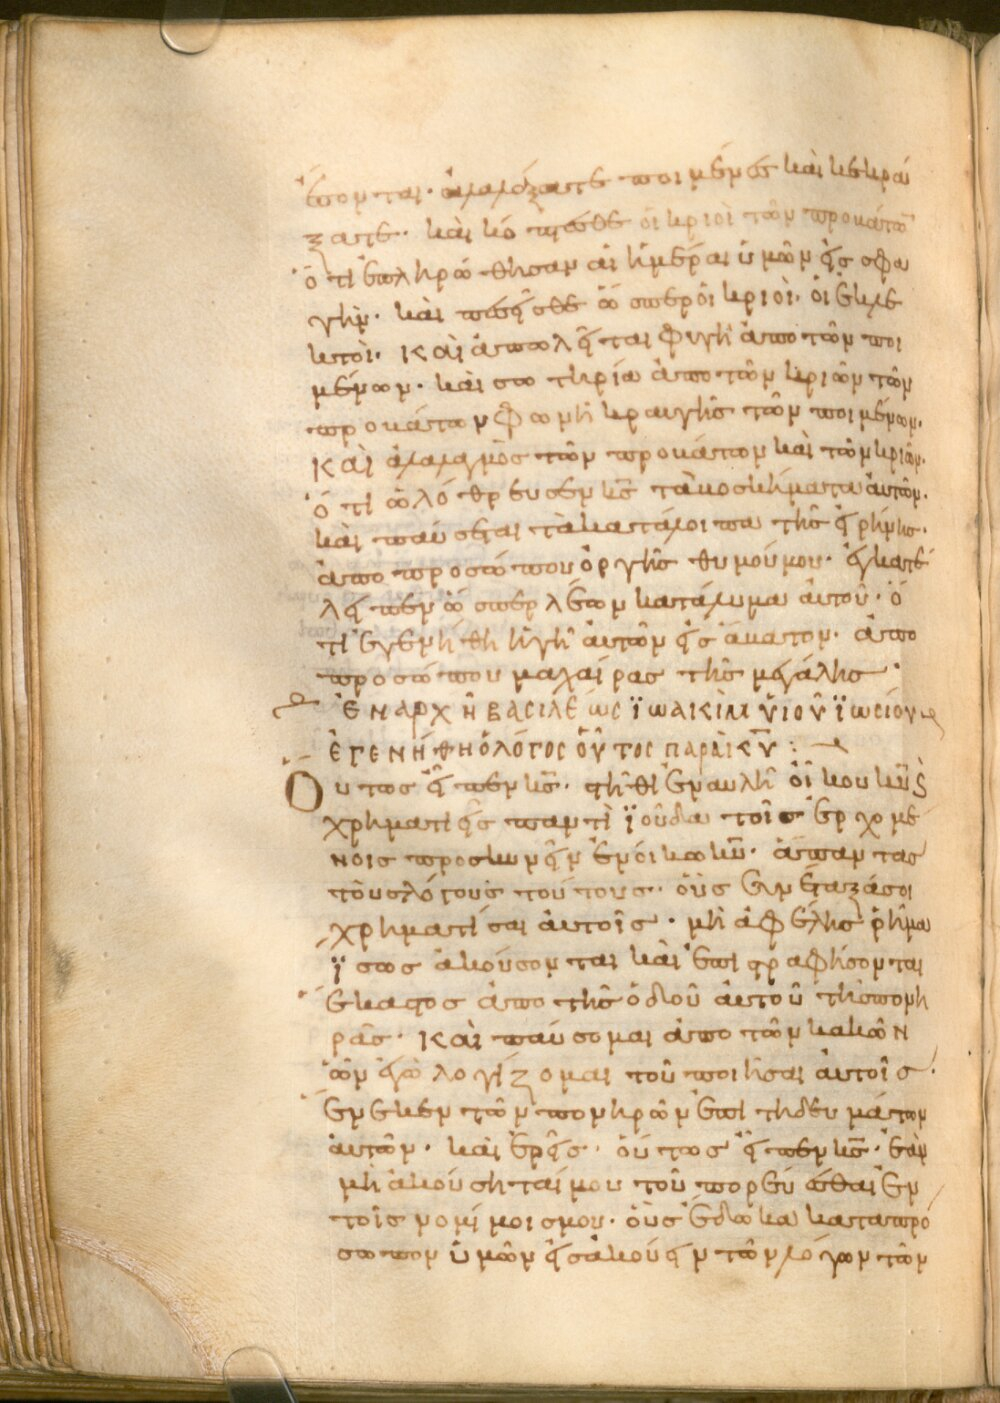 ἔσονται· ἀλαλάξατε ποιμένες καὶ κεκρά
ξατε· καὶ κόπτεσθε οἱ κριοὶ τῶν προβάτω̅
ὅτι ἐπληρώθησαν αἱ ἡμέραι ὑμῶν εἰς σφα
γήν· καὶ πεσεῖσθε ὥσπερ οἱ κριοὶ· οἱ ἐκλε
κτοὶ· καὶ ἀπωλεῖται φυγὴ ἀπὸ τῶν ποι
μένων· καὶ σωτηρία ἀπὸ τῶν κριῶν τῶν
προβάτων φωνὴ κραυγῆς τῶν ποιμένων·
καὶ ἀλαλαγμὸς τῶν προβάτων καὶ τῶν κριῶν·
ὅτι ὠλόθρευσεν κ̅ς̅ τὰ βοσκήματα αὐτῶν·
καὶ παύσεται τὰ κατάλοιπα τῆς εἰρήνης·
ἀπὸ προσώπου ὀργῆς θυμοῦ μου· ἐγκατέ
λειπεν ὥσπερ λέων κατάλυμα αὐτοῦ· ὅ
τι ἐγενήθη ἡ γῆ αὐτῶν εἰς ἄβατον· ἀπὸ
προσώπου μαχαίρας τῆς μεγάλης·
ἘΝ ἈΡΧΗ͂ ΒΑΣΙΛΈΩΣ ἸΩΑΚΙΜ ΥἹΟΥ͂ ἸΩΣΙΟΥ
ἘΓΕΝΉΘΗ Ὁ ΛΌΓΟΣ ΟΥ̓͂ΤΟΣ ΠΑΡᾺ Κ̅Υ̅ :
Οὕτως εἶπεν κ̅ς̅· στῆθι ἐν αυλῇ οἴκου κ̅υ̅ κ̀
χρηματιεῖς παντὶ ϊούδα τοῖς ἐρχομέ
νοις προσκυνεῖν ἐν οἴκω κ̅υ̅· ἅπαντας
τοὺς λόγους τούτους· οὓς συνέταξά σοι
χρηματίσαι αὐτοῖς· μὴ ἀφέλης ῥῆμα
ϊσως ἀκούσονται καὶ ἐπιστραφήσονται
ἕκαστος ἀπὸ τῆς ὁδοῦ αὐτοῦ τῆς πονη
ρᾶς· καὶ παύσομαι ἀπὸ τῶν κακῶν
ὧν ἐγὼ λογίζομαι τοῦ ποιῆσαι αὐτοῖς·
ἕνεκεν τῶν πονηρῶν ἐπιτηδευμάτων
αὐτῶν· καὶ ἐρεῖς· οὕτως εἶπεν κ̅ς̅· ἐὰν
μὴ ἀκούσηταί μου τοῦ πορεύεσθαι ἐν
τοῖς νομίμοις μου· οὓς ἔδωκα κατὰ πρό
σωπον ὑμῶν εἰσακούειν τῶν λόγων τῶν